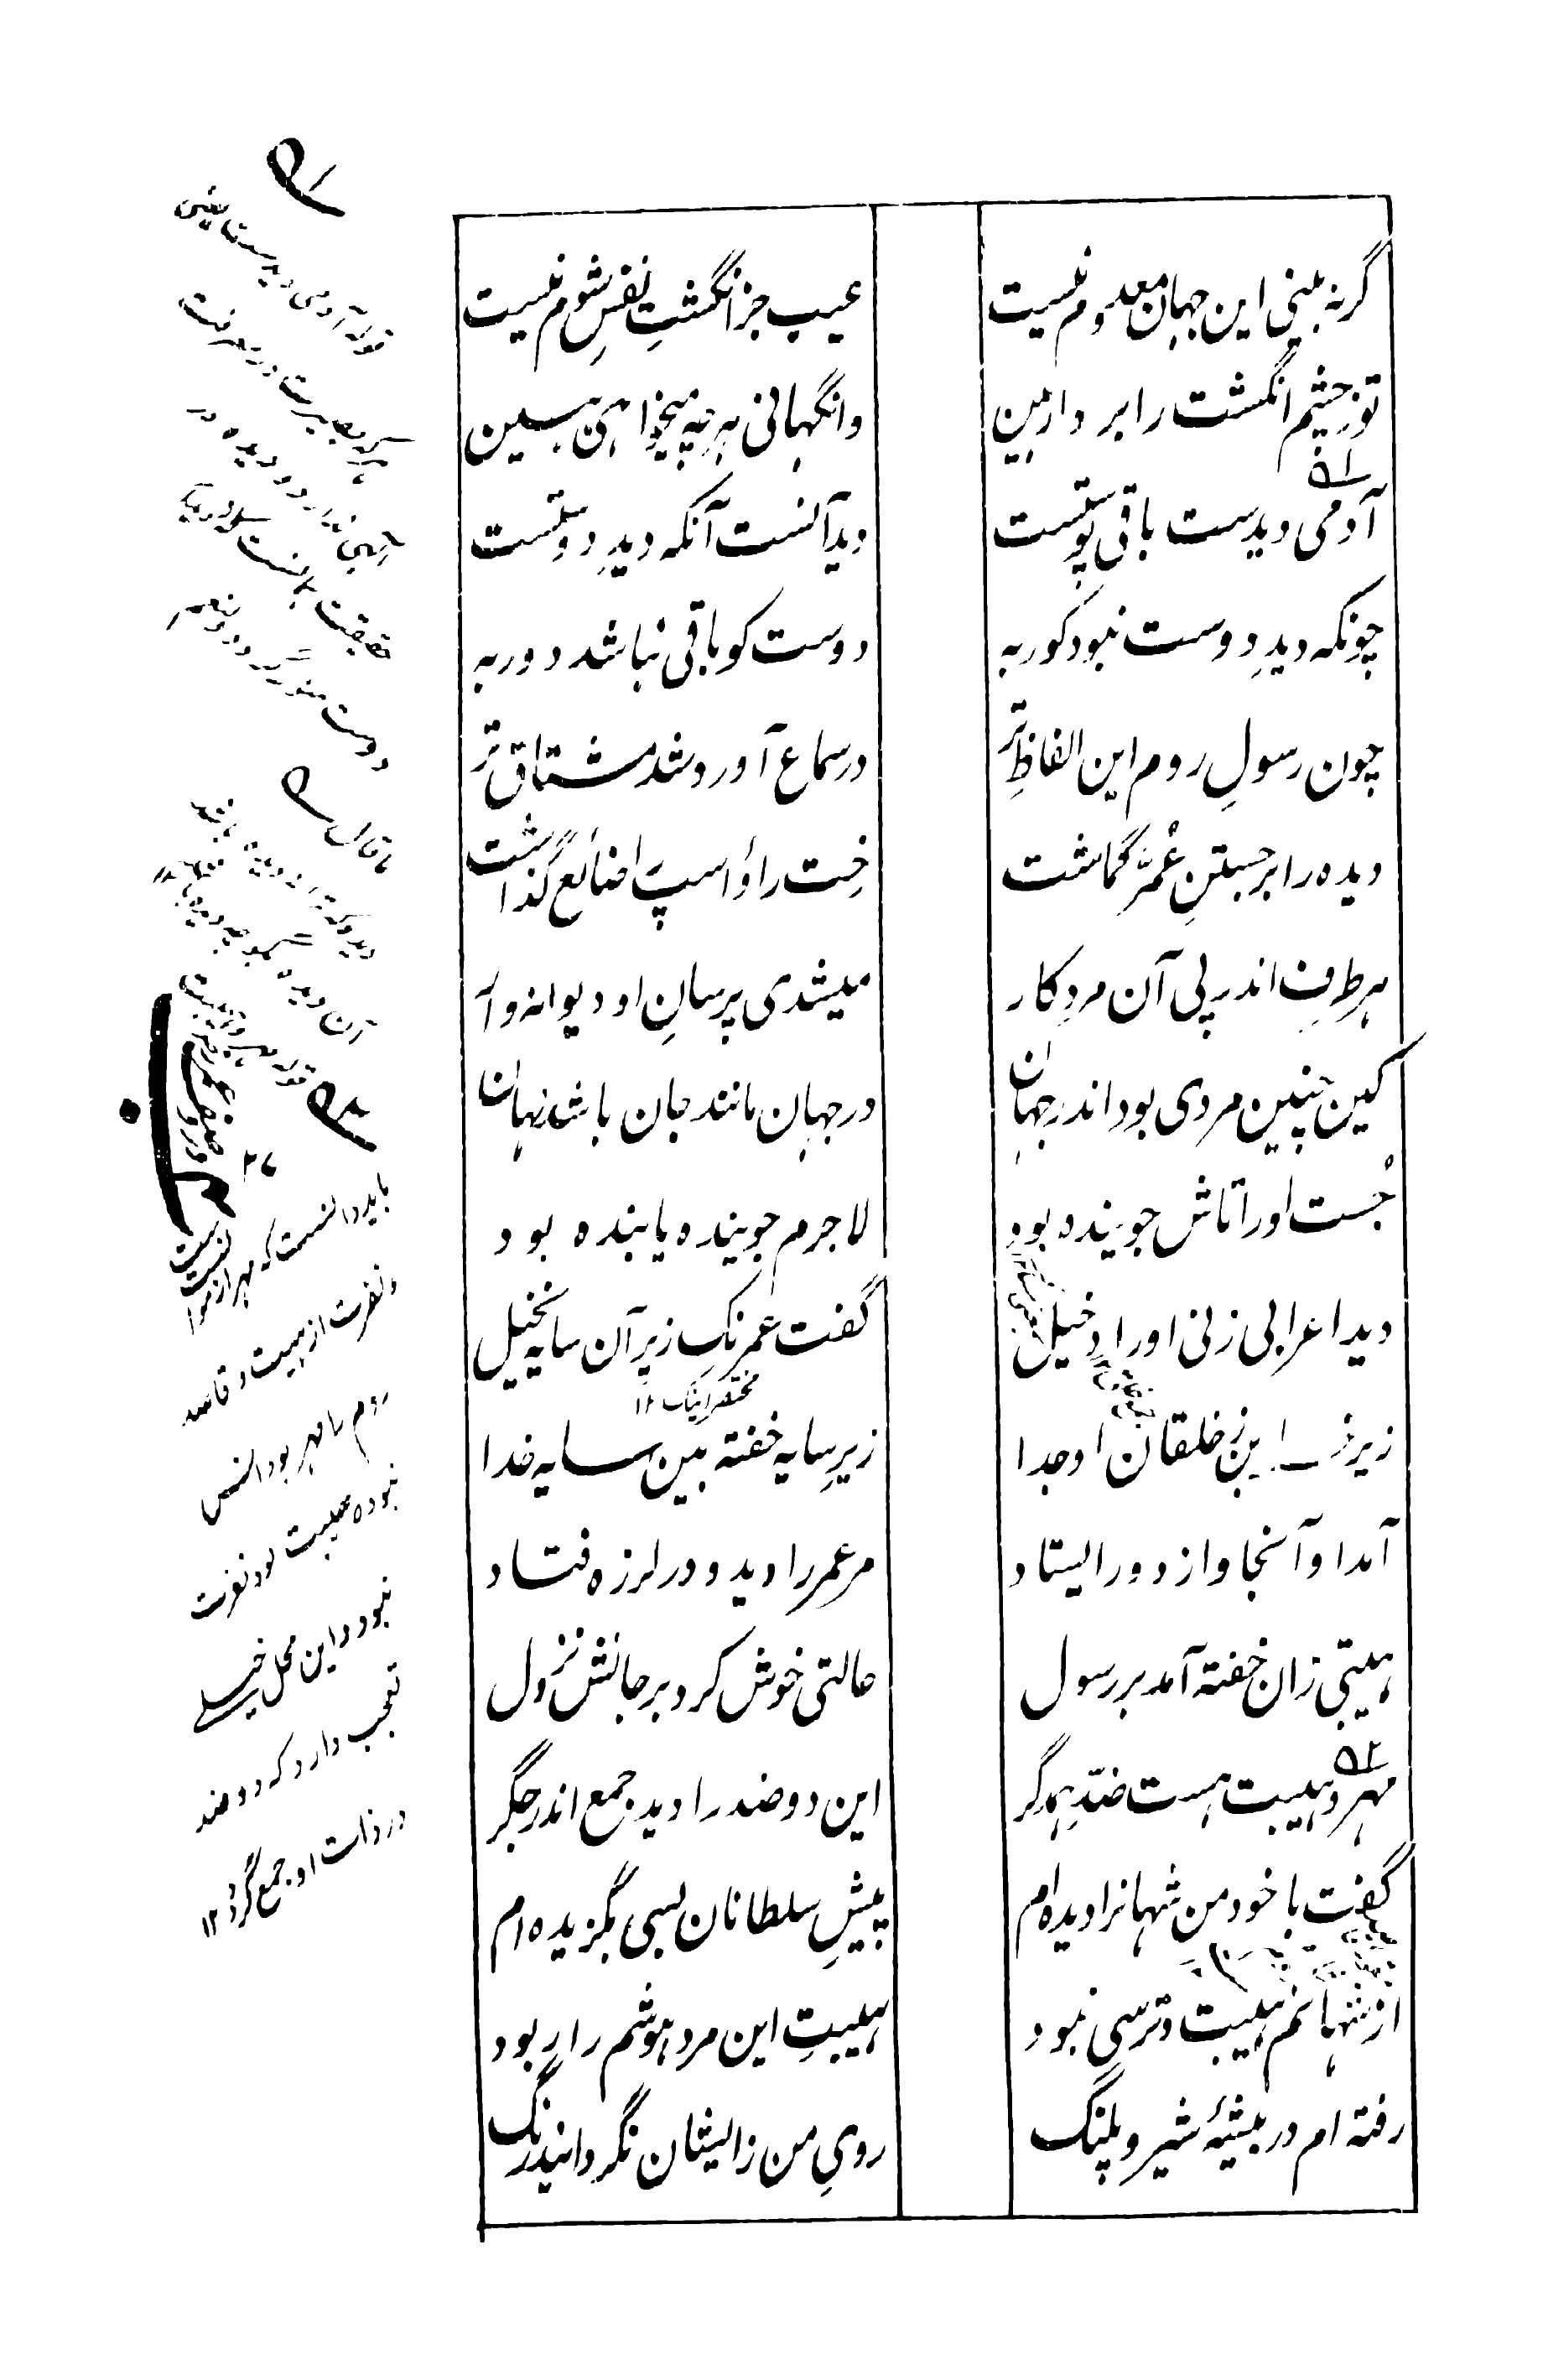 گر نه بینی این جهان معدوم نیست
عیب جز انگشتِ نفسِ شوم نیست
تو ز چشم انگشت را بردار هین
وانگهانی هرچه میخواهی ببین
آدمی دیدست باقی پوستست
دید آنست آنکه دیدِ دوستست
چونکه دیدِ دوست نبود کور به
دوست کو باقی نباشد دور به
چون رسولِ روم این الفاظِ تر
در سماع آورد شد مشتاق تر
دیده را بر جستنِ عُمَر گماشت
رخت را و اسپ را ضائع گذاشت
هر طرف اندر پی آن مردِ کار
میشدی پرسانِ او دیوانه وار
کین چنین مردی بود اندر جهان
در جهان مانند جان باشد نهان
جُست او را تاش جوینده بود
لاجرم جوینده یابنده بود
دید اعرابی زنی او را دخیل
گفت عمر نک زیر آن سایه نخیل
مختصر اینک ۱۲
زیر خرما بن ز خلقان او جدا
زیر سایه خفته بین سایه خدا
آمد او آنجا و از دور ایستاد
مر عمر را دید و در لرزه فتاد
هیبتی زان خفته آمد بر رسول
حالتی خوش کرد بر جانش نزول
مهر و هیبت هست ضدّ همدگر
این دو ضد را دید جمع اندر جگر
گفت با خود من شهانرا دیده ام
پیشِ سلطانان بسی بگزیده ام
از شهانم هیبت و ترسی نبود
هیبتِ این مرد هوشم را ربود
رفته ام در بیشهٔ شیر و پلنگ
روی من زایشان نگردانید رنگ
قوله آدمی دیدست یعنی
هر که بصیرت در معرفت
الهی ندارد و دیده در
حقیقت
باید دانست که مهر از موا
نست
و نفرت از هیبت و قاصد
روم را مهر بود انس
نبوده هیبت بود نفرت
نبود و این محل خیلی
تعجب دارد که دو ضد
در ذات او جمع گردد ۱۲